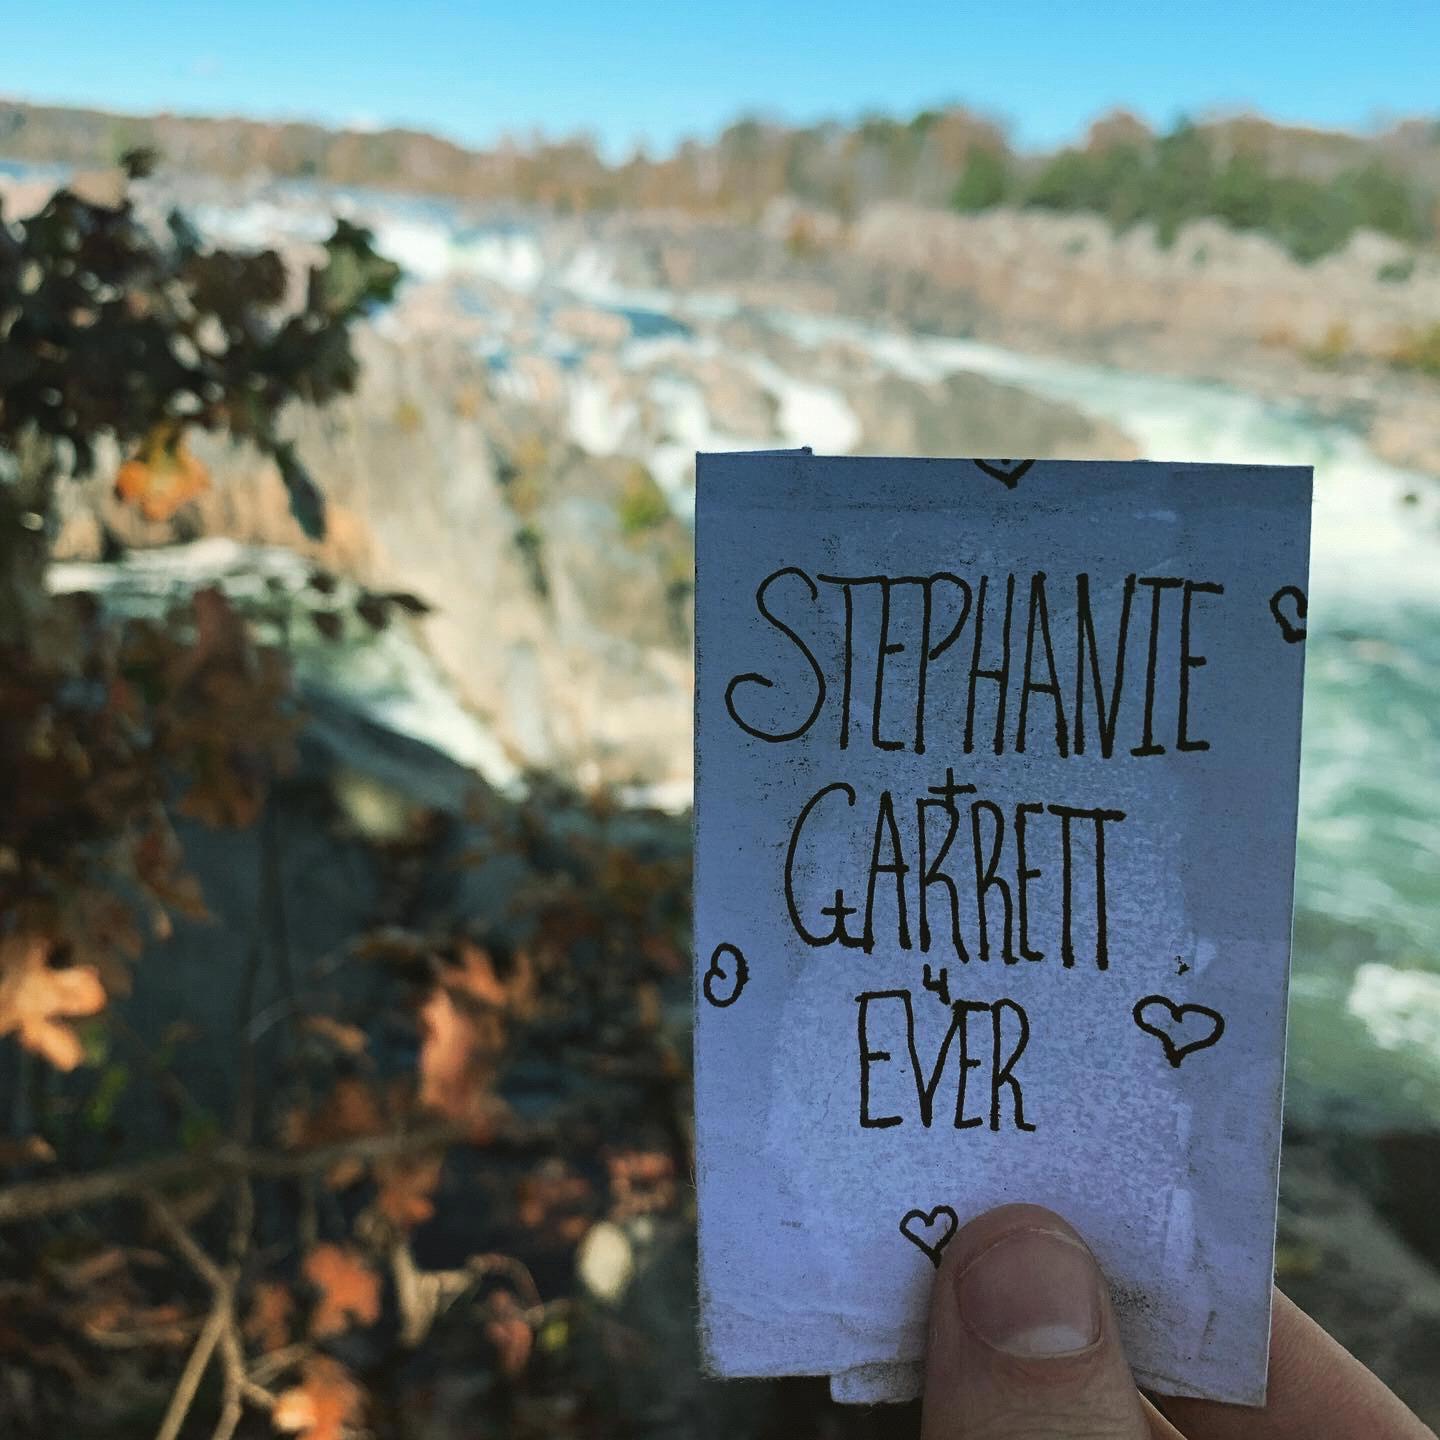 STEPHANIE
+
GARRETT
4
EVER